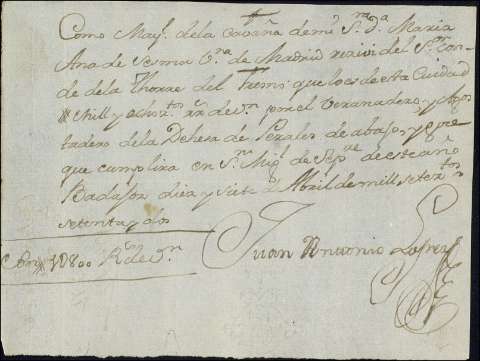 Como May.l de la Cavaña de mi S.ra D.a Maria
Ana de Sesma V.na de Madrid reciví del S.r Con-
de de la Thorre del Fresno que lo es de esta Ciudad
Mill y ochoz.tos r.s de v.n por el Veranadero, y Agos
tadero de la Dehesa de Perales de abajo, y
que cumplira en S.n Mig.l de Sep.re de este año
Badajoz diez y siete de Abril de mill setez.tos
setenta y dos
Son 1800 R.s de v.n
Juan Antonio Lopez